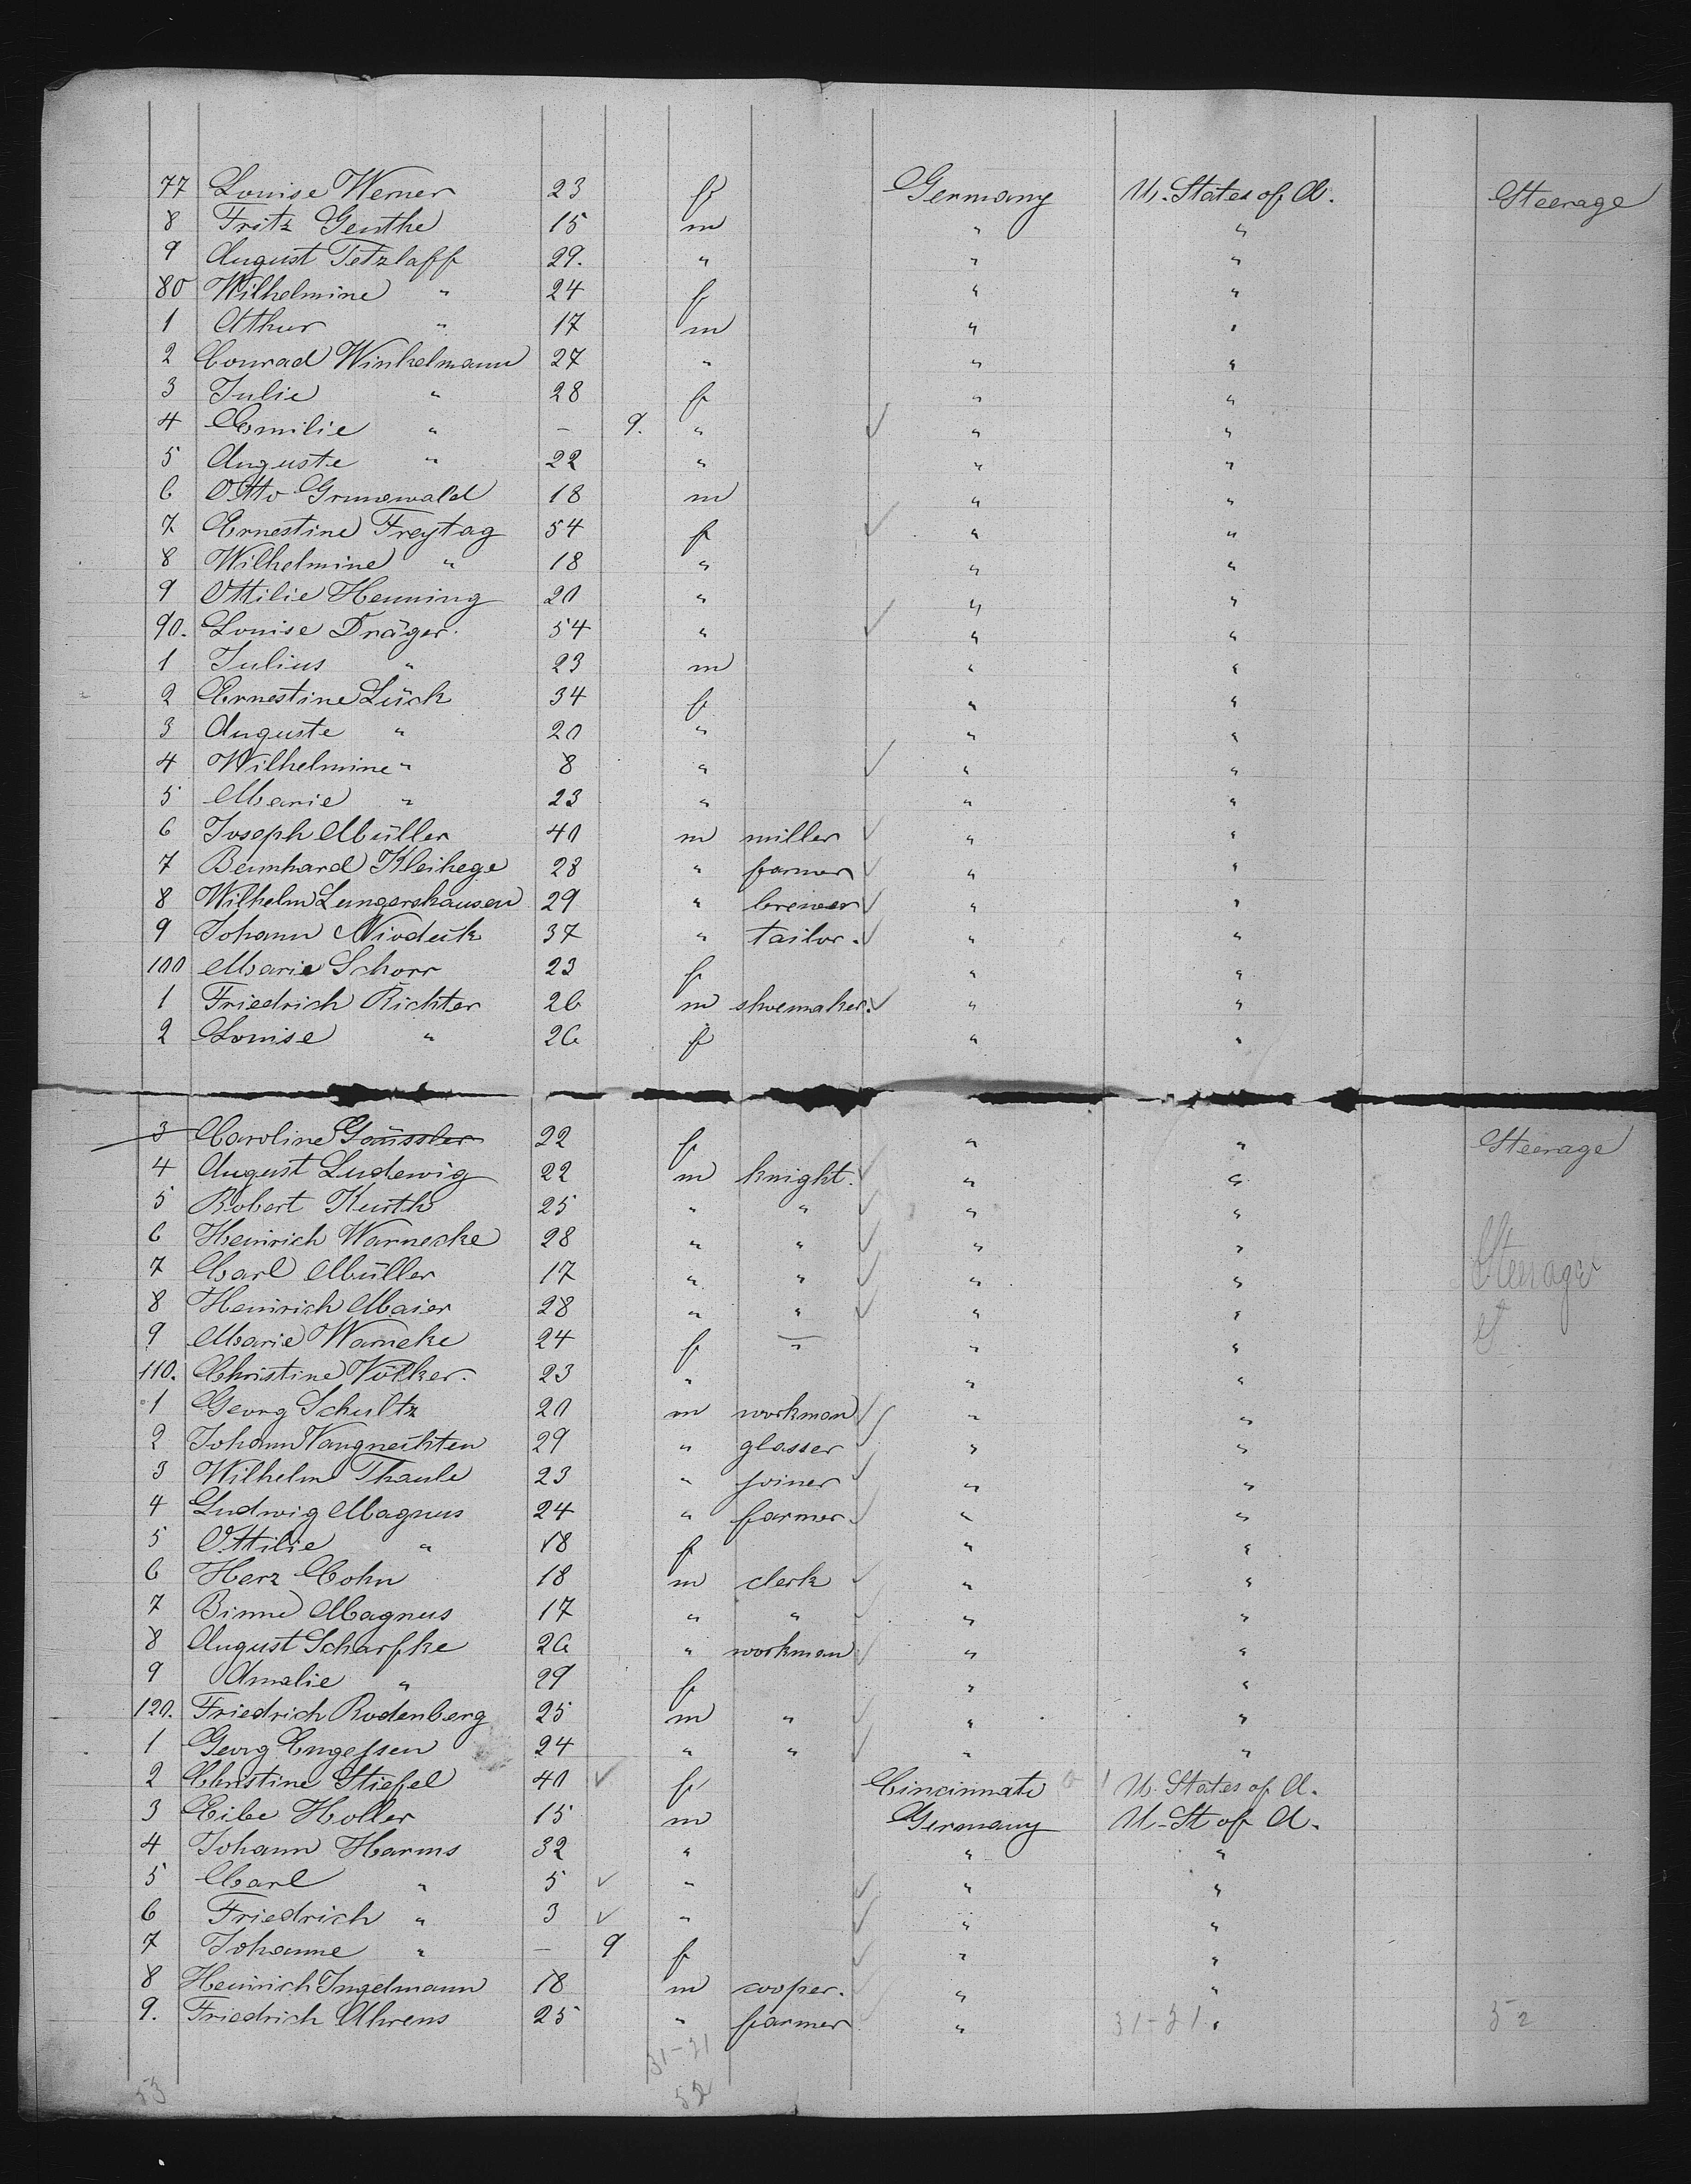 77 Louise Werner 23 f Germany U. States of A. Steerage
8 Fritz Genthe 15 m " "
9 August Tetzlaff 29. " " "
80 Wilhelmine " 24 f " "
1 Athur " 17 m " "
2 Conrad Winkelmann 27 " " "
3 Julie " 28 f " "
4 Emilie " – 9. " ✓ " "
5 Auguste " 22 " " "
6 Otto Grunewald 18 m " "
7 Ernestine Freytag 54 f ✓ " "
8 Wilhelmine " 18 " " "
9 Ottilie Henning 20 " " "
90. Louise Dräger. 54 " ✓ " "
1 Julius " 23 m " "
2 Ernestine Lück 34 f " "
3 Auguste " 20 " " "
4 Wilhelmine " 8 " ✓ " "
5 Marie " 23 " " "
6 Joseph Müller 40 m miller ✓ " "
7 Bernhard Kleihege 28 " farmer ✓ " "
8 Wilhelm Lungershausen 29 " brewer ✓ " "
9 Johann 37 " tailor. ✓ " "
100 Marie Schorr 23 f " "
1 Friedrich Richter 26 m shoemaker. ✓ " "
2 Louise " 26 f " "
3 Caroline Gaüssler 22 f " " Steerage
4 August Ludewig 22 m knight. ✓ " "
5 Robert Kurth 25 " " ✓ " "
6 Heinrich Warnecke 28 " " ✓ " "
7 Carl Müller 17 " " ✓ " " Steerage
8 Heinrich Maier 28 " " ✓ " "
9 Marie Warneke 24 f – " "
110. Christine Völker. 23 " " "
1 Georg Schultz 20 m workman ✓ " "
2 Johann Vangneihten 29 " glasser ✓ " "
3 Wilhelm Thaule 23 " joiner ✓ " "
4 Ludwig Magnus 24 " farmer ✓ " "
5 Ottilie " 18 f " "
6 Herz Cohn 18 m clerk ✓ " "
7 Binne Magnus 17 " " ✓ " "
8 August Scharfke 26 " workman ✓ " "
9 Amalie " 29 f " "
120. Friedrich Rodenberg 25 m " ✓ " "
1 Georg Engessen 24 " " ✓ " "
2 Christine Stiefel 40 ✓ f Cincinnati U. States of A.
3 Eibe Holler 15 m Germany U. St of A.
4 Johann Harms 32 " " "
5 Carl " 5 ✓ " ✓ " "
6 Friedrich " 3 ✓ " ✓ " "
7 Johanne " – 9 f ✓ " "
8 Heinrich Ingelmann 18 m cooper. ✓ " "
9. Friedrich Ahrens 25 " farmer ✓ " 31-21 " 52
31-21
53 52